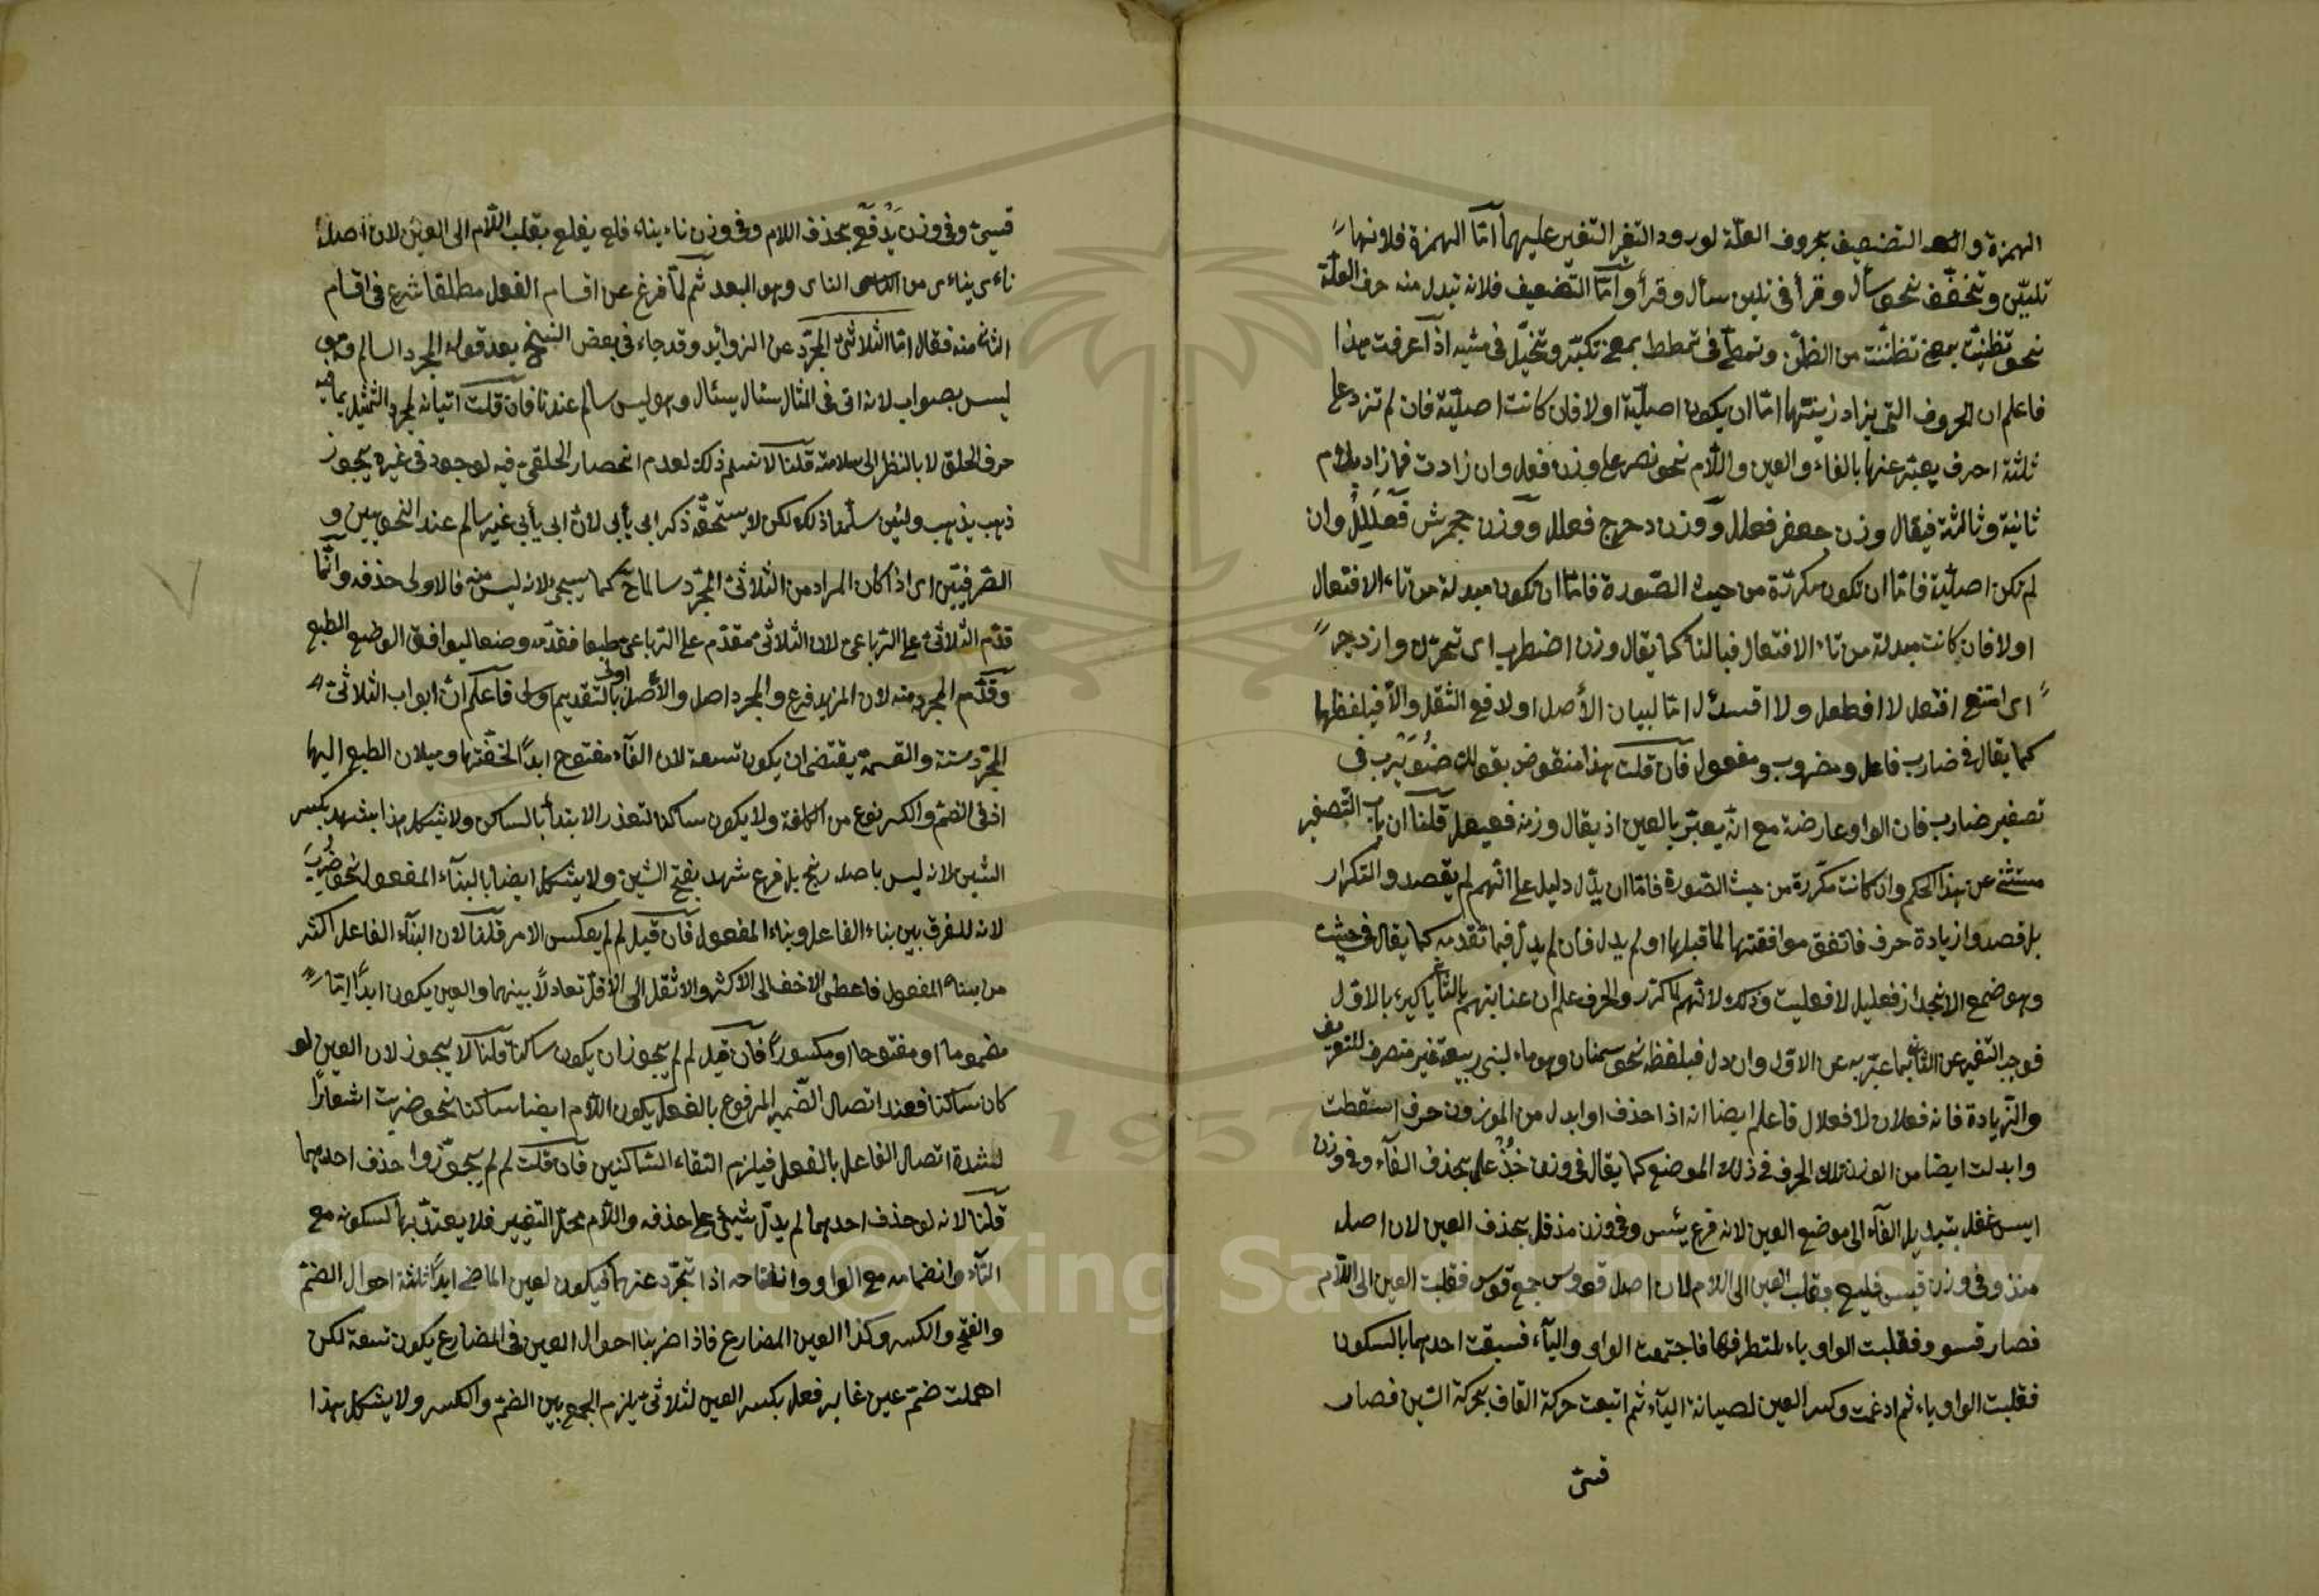 الهمزة والتضعيف بحروف العلّة لورود التغير عليهما امّا الهمزة فلانها
تليّن وتخفّف نحو سأل وقرأ في تليين سأل وقرأ وامّا التضعيف فلانه تبدل منه حرف العلّة
نحو تظنيت بمعنى تظننت من الظنّ وتمطّى في تمطط بمعنى تكبّر وتخيّل في مشيه اذا عرفت هذا
فاعلم ان الحروف التي يراد زينتها امّا ان يكون اصليّة او لا فان كانت اصليّة فان لم تزد على
ثلثة احرف يعبّر عنها بالفاء والعين واللّام نحو نصر على وزن فعل وان زادت فما زاد بلام
ثانية وثالثة فيقال وزن جعفر فعلل ووزن دحرج فعلل ووزن جحمرش فَعْلَلِلٌ وان
لم تكن اصليّة فامّا ان تكون مكررة من حيث الصّورة فامّا ان تكون مبدلة من تاء الافتعال
اولا فان كانت مبدلة من تاء الافتعال فبالتاء كما يقال وزن اضطرب اى تحرّك وازدجر
اى امتنع افتعل لا افطعل ولا افدعل امّا لبيان الأصل او لدفع الثقل والّا فبلفظها
كما يقال في ضارب فاعل ومضروب مفعول فان قلت هذا منقوض بقولك ضُوَيْرب في
تصغير ضارب فان الواو عارضة مع انّه يعبّر بالعين اذ يقال وزنه فعيعل قلنا ان باب التصغير
مستثنى عن هذا الحكم وان كانت مكررة من حيث الصّورة فامّا ان يدّل دليل على انّهم لم يقصدوا التكرار
بل قصدوا زيادة حرف فاتفق موافقتها لما قبلها او لم يدل فان لم يدلّ فبما تقدمه كما يقال في
وهو ضمع الانجدان فعليل لا فعليت وذلك لانّهم لما كرّر والحرف علم ان عنايتهم بالثاني كهى بالاوّل
فوجب التعبير عن الثاني بما عبّر به عن الاوّل وان دل فبلفظه نحو سمنان وهو ماء لبنى ربيعة غير منصرف للتعريف
والزيادة فانه فعلان لا فعلال فاعلم ايضا انه اذا حذف او ابدل من الموزون حرف اسقطت
وابدلت ايضا من الوزن ذلك الحرف في ذلك الموضع كما يقال في وزن خُذْ عل بحذف الفآء وفي وزن
ايس عفل بتبديل الفآء الى موضع العين لانه فرع يئس وفي وزن مذ فل بحذف العين لان اصله
منذ وفي وزن قسى فليع بقلب العين الى اللام لان اصله قووس جمع قوس فقلبت العين الى اللّام
فصار قسوو فقلبت الواو ياء لتطرفها فاجتمعت الواو واليآء فسبقت احديهما بالسكون
فقلبت الواو ياء ثم ادغمت وكسر العين لصيانة اليآء ثم اتبعت حركة القاف بحركة السّين فصار
قسىّ
قسىّ وفي وزن يَدٌ فَعٌ بحذف اللام وفي وزن ناء يناء فلع يفلع بقلب اللّام الى العين لان اصله
ناءى يناءى من الناى وهو البعد ثم لمّا فرغ عن اقسام الفعل مطلقا شرع في اقسام
الثانى منه فقال امّا الثلاثىّ المجرّد عن الزوائد وقد جاء في بعض النسخ بعد قوله المجرد السالم وهو
ليس بصواب لانه اتى في المثال سئال يسئال وهو ليس سالم عندنا فان قلت اتيانه لمجرد التمثيل بما فيه
حرف الحلق لا بالنظر الى سلامته قلنا لا نسلم ذلك لعدم انحصار الحلقى فيه لوجود في غيره نحو
ذهب يذهب ولئن سلّمنا ذلك لكن لا يستحقّه ذكر ابى يأبى لانّ ابى يأبى غير سالم عند النحويين و
الصّرفيّين اى اذا كان المراد من الثلاثىّ المجرّد سالما كما سيجئ لانه ليس منه فالاولى حذفه وانّما
قدّم الثلاثىّ على الرّباعى لان الثلاثى مقدّم على الرّباعى طبعا فقدّمه وضعا ليوافق الوضع الطبع
وقدّم المجرد منه لان المزيد فرع والمجرد اصل والأصل بالتقديم اولى فاعلم انّ ابواب الثلاثىّ
المجرّد ستة والقسمة يقتضى ان يكون تسعة لان الفآء مفتوح ابدًا لخفّتها وميلان الطبع اليها
اذ في الضمّ والكسر نوع من الكلفة ولا يكون ساكنا لتعذر الابتدأ بالساكن ولا يشكل هذا بشهد بكسر
الشين لانه ليس باصله بل فرع شهد بفتح الشين ولا يشكل ايضا بالبنآء المفعول نحو ضُرِبَ
لانه للفرق بين بناء الفاعل وبناء المفعول فان قيل لم لم يعكس الامر قلنا لان البنآء الفاعل اكثر
من بناء المفعول فاعطى الاخف الى الاكثر والاثقل الى الاقلّ تعادلاً بينهما والعين يكون ابدًا امّا
مضموما او مفتوحا او مكسورًا فان قيل لم لم يجوز ان يكون ساكنا قلنا لا يجوز لان العين لو
كان ساكنا فعند اتصال الضّمير المرفوع بالفعل يكون اللّام ايضا ساكنا نحو ضربت اشعارًا
لشدة اتصال الفاعل بالفعل فيلزم التقاء السّاكنين فان قلت لم لم يجوّزوا حذف احديهما
قلنا لانه لو حذف احديهما لم يدلّ شيئ على حذفه واللّام محلّ التغيير فلا يعتدّ بها لسكونه مع
التآء وانضمامه مع الواو وانفتاحه اذا تجرّد عنهما فيكون لعين الماضى ابدًا ثلثة احوال الضمّ
والفتح والكسر وكذا العين المضارع فاذا ضربنا احوال العين في المضارع يكون تسعة لكن
اهملت ضمّ عين غابر فعل بكسر العين لئلا يلزم الجمع بين الضمّ والكسر ولا يشكل هذا
Copyright © King Saud University
1957